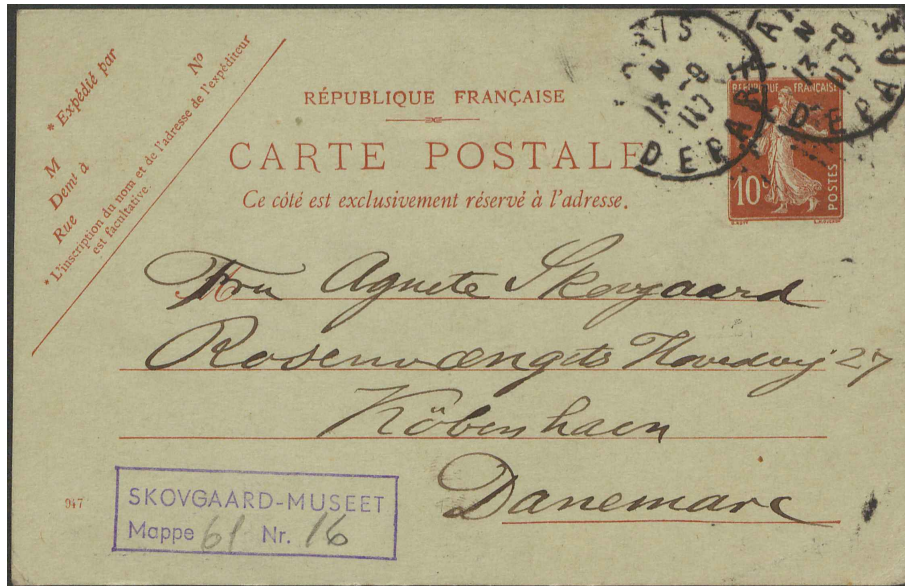 * Expédié par
No
M
Demt à
Rue
* L'inscription du nom et de l'adresse de l'expéditeur
est facultative.
RÉPUBLIQUE FRANÇAISE
CARTE POSTALE
Ce côté est exclusivement réservé à l'adresse.
DEPART
DEPART
RÉPUBLIQUE FRANÇAISE
10c
POSTES
Fru Agnete Skovgaard
Rosenvængets Hovedvej 27
Köbenhavn
Danemarc
947
SKOVGAARD-MUSEET
Mappe 61 Nr. 16